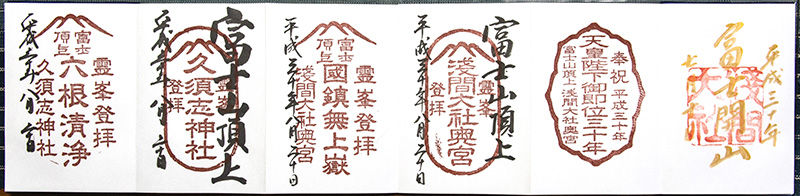 平成三十年
富士開山
淺間大社
奉祝 平成三十年
天皇陛下御即位三十年
富士山頂上 淺間大社奥宮
富士山頂上
霊峯
淺間大社奥宮
登拝
平成三十年八月二十日
霊峯登拝
富士頂上
國鎮無上嶽
淺間大社奥宮
平成三十年八月二十日
富士山頂上
霊峯
久須志神社
登拝
霊峯登拝
富士頂上
六根清浄
久須志神社